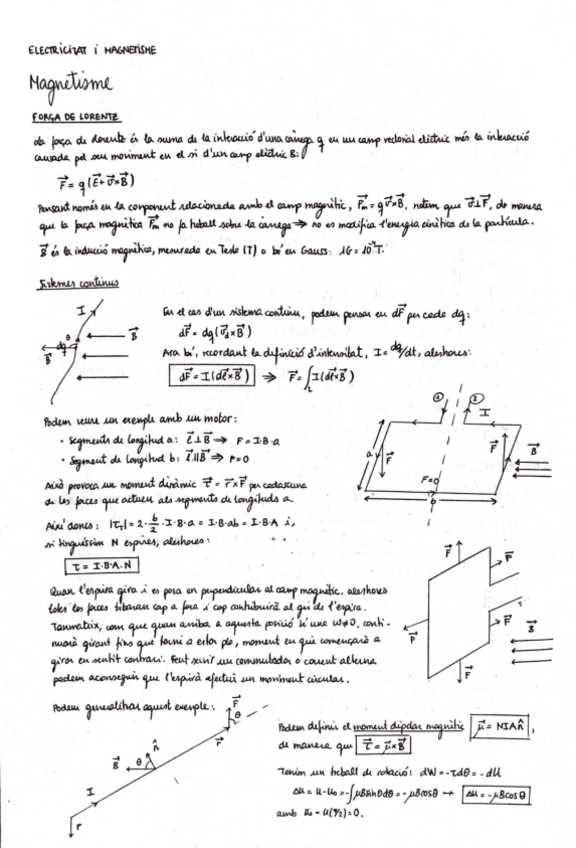 ELECTRICITAT i MAGNETISME
Magnetisme
FORÇA DE LORENTZ
La força de Lorentz és la suma de la interacció d'una càrrega q en un camp vectorial elèctric més la interacció
causada pel seu moviment en el si d'un camp elèctric B:
F⃗ = q(E⃗ + v⃗×B⃗)
Pensant només en la component relacionada amb el camp magnètic, F⃗m = q v⃗×B⃗, notem que v⃗⊥F⃗, de manera
que la força magnètica F⃗m no fa treball sobre la càrrega ⇒ no es modifica l'energia cinètica de la partícula.
B⃗ és la inducció magnètica, mesurada en Tesla (T) o bé en Gauss: 1G = 10⁻⁴T.
Sistemes continus
En el cas d'un sistema continu, podem pensar en dF⃗ per cada dq:
dF⃗ = dq(v⃗d×B⃗)
Ara bé, recordant la definició d'intensitat, I = dq/dt, aleshores:
dF⃗ = I(dℓ⃗×B⃗) ⇒ F⃗ = ∫L I(dℓ⃗×B⃗)
I
θ
dq
B⃗
B⃗
Podem veure un exemple amb un motor:
· Segments de longitud a: ℓ⃗⊥B⃗ ⇒ F = I·B·a
· Segment de longitud b: ℓ⃗∥B⃗ ⇒ F=0
Això provoca un moment dinàmic τ⃗ = r⃗×F⃗ per cadascuna
de les forces que actuen als segments de longituds a.
Així doncs: |τT| = 2·b/2·I·B·a = I·B·ab = I·B·A i,
si tinguéssim N espires, aleshores:
τ = I·B·A·N
① ② I
a F⃗ F⃗ B⃗
F=0
b
Quan l'espira gira i es posa en perpendicular al camp magnètic, aleshores
totes les forces tibaran cap a fora i cap contribuirà al gir de l'espira.
Tanmateix, com que quan arriba a aquesta posició té una W≠0, conti-
nuarà girant fins que torni a estar pla, moment en què començarà a
girar en sentit contrari. Fent servir un commutador o corrent alterna
podem aconseguir que l'espira efectuï un moviment circular.
F⃗
F⃗
F⃗ B⃗
F⃗
F⃗
Podem generalitzar aquest exemple:
F⃗
θ
r⃗
n̂
B⃗ θ
I
F
Podem definir el moment dipolar magnètic μ⃗ = NIAn̂,
de manera que τ⃗ = μ⃗×B⃗
Tenim un treball de rotació: dW = -τdθ = -dU
ΔU = U-U₀ = -∫μBsinθdθ = -μBcosθ → ΔU = -μBcosθ
amb U₀ = U(π/2)=0.